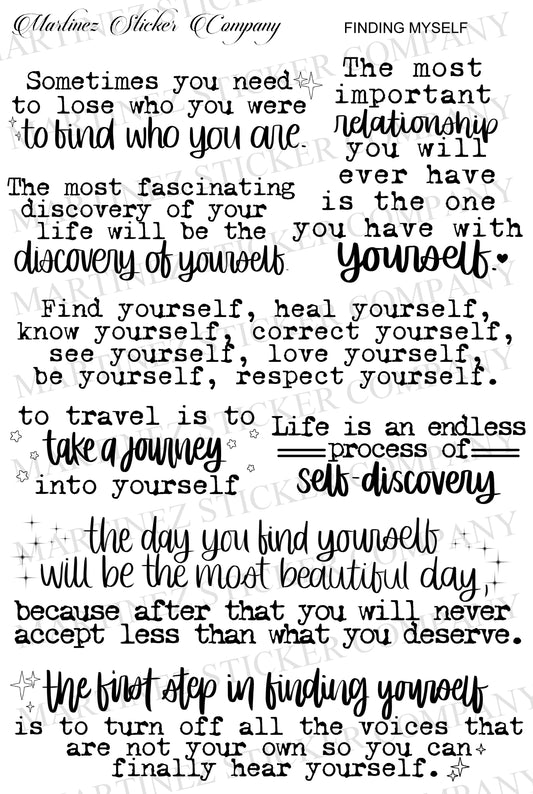 Martinez Sticker Company
FINDING MYSELF
Sometimes you need
to lose who you were
to find who you are.
The most
important
relationship
you will
ever have
is the one
you have with
yourself.
The most fascinating
discovery of your
life will be the
discovery of yourself.
Find yourself, heal yourself,
know yourself, correct yourself,
see yourself, love yourself,
be yourself, respect yourself.
to travel is to
take a journey
into yourself
Life is an endless
process of
self-discovery
the day you find yourself
will be the most beautiful day,
because after that you will never
accept less than what you deserve.
the first step in finding yourself
is to turn off all the voices that
are not your own so you can
finally hear yourself.
MARTINEZ STICKER COMPANY